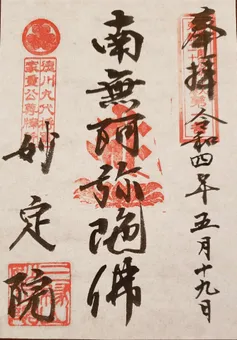 奉拝 令和四年五月十九日
南無阿弥陀佛
徳川九代
家重公尊牌
妙定院